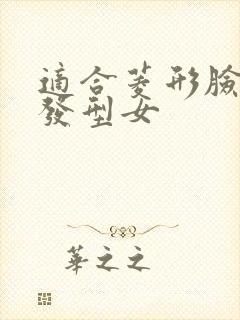 適合菱形臉
發型女
華之之